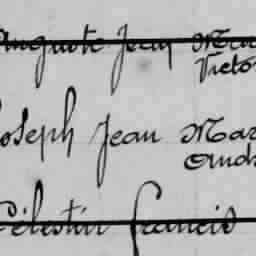 Auguste Jean Mar
Victo
Joseph Jean Mar
André
Célestin Francis